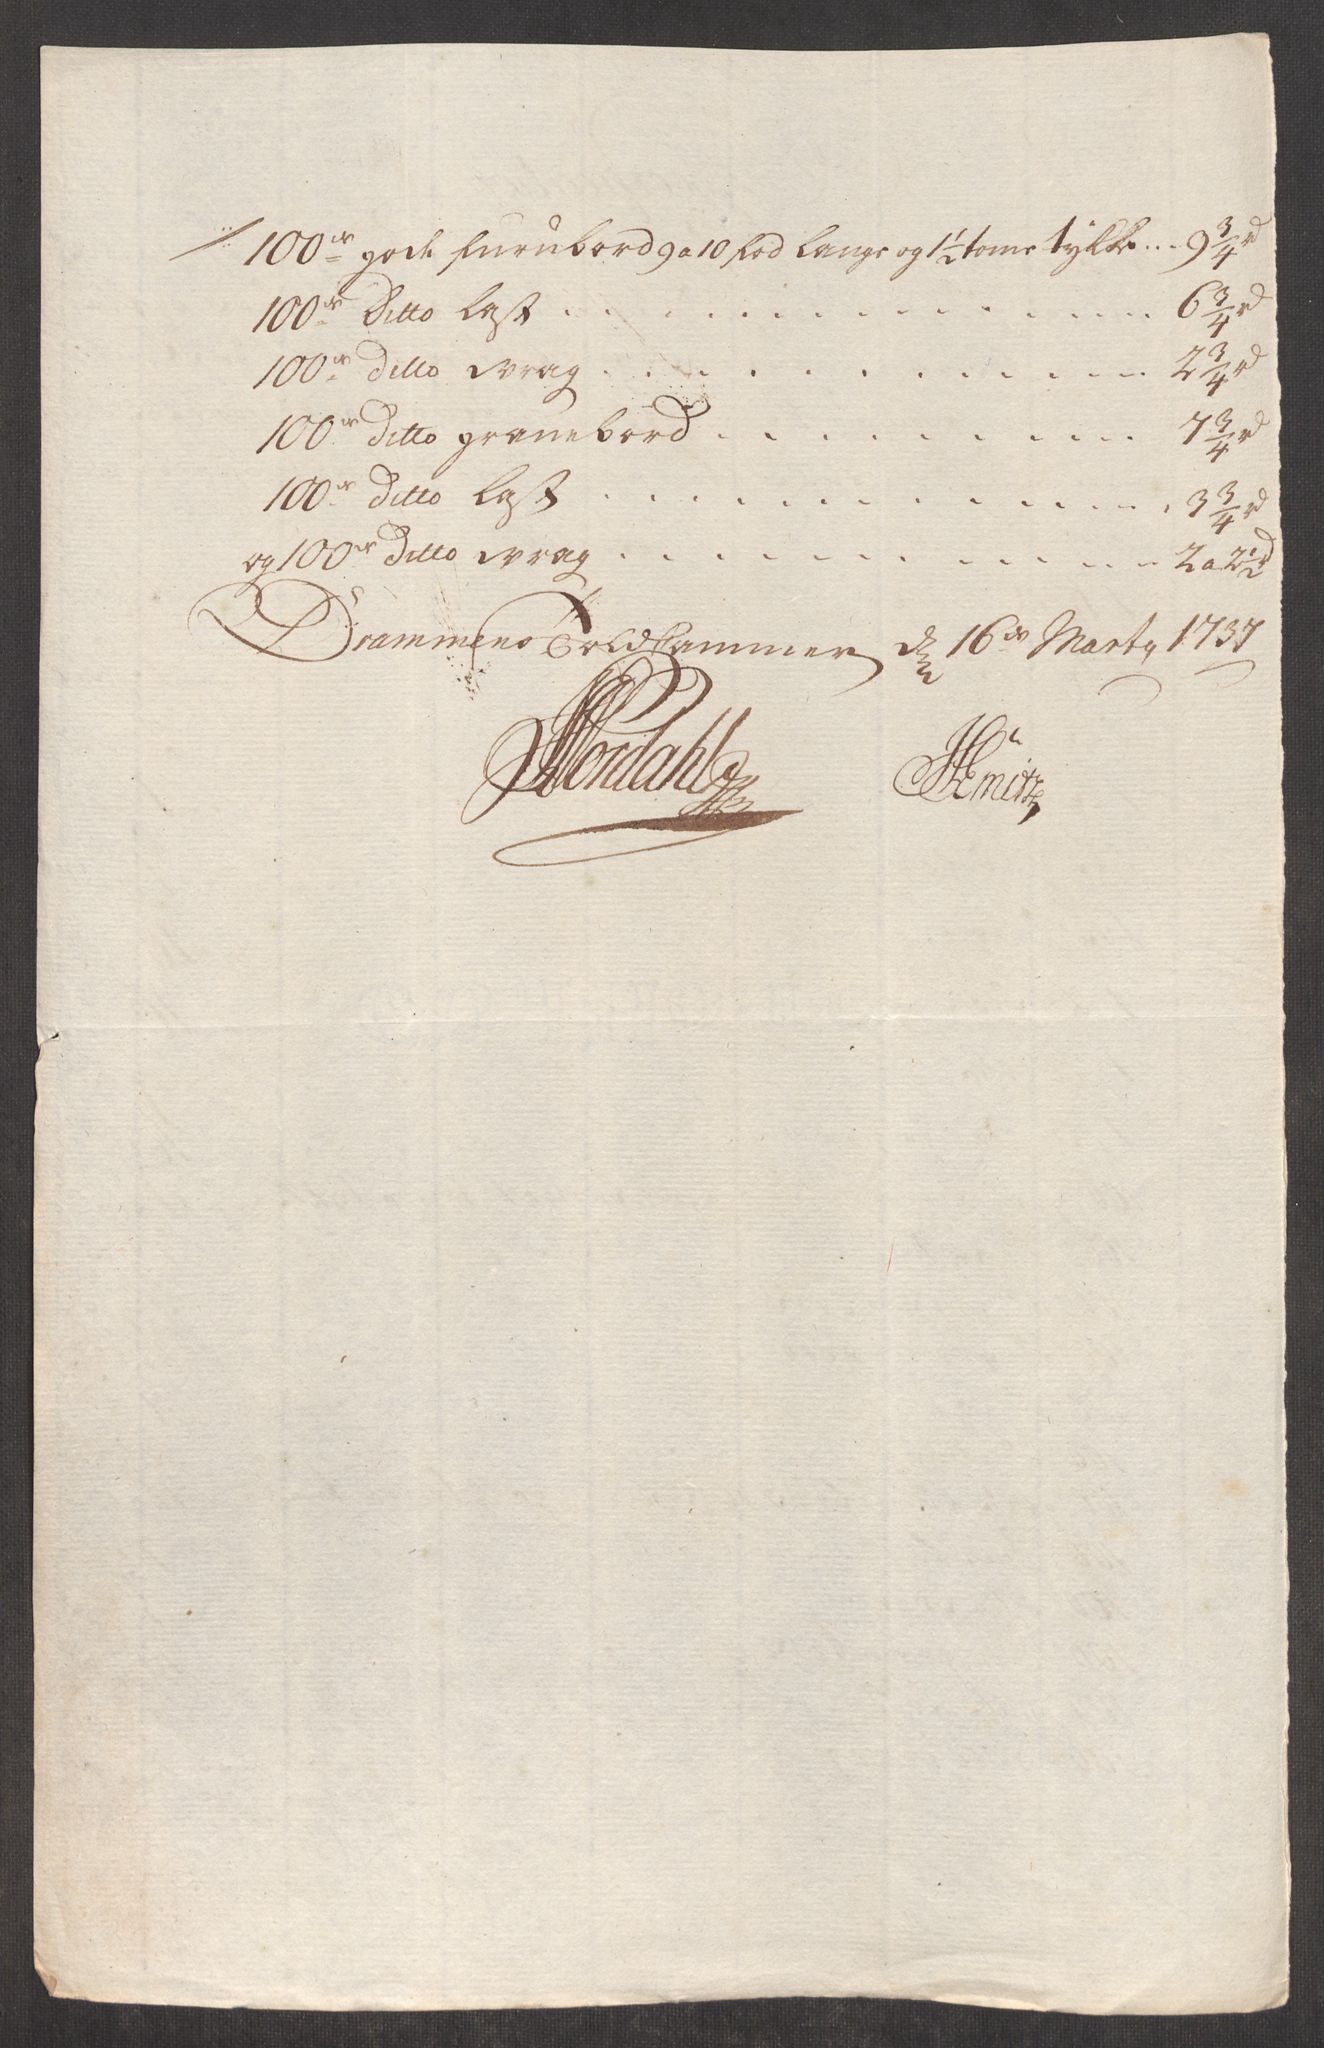 100de gode furubord 9 a 10 fod lange og 1½ tome tykke ... 9¾ rd
100de Ditto last . . . . . . . . . . . . . . 6¾ rd
100de Ditto wrag . . . . . . . . . . . . . 2¾ rd
100de Ditto granebord . . . . . . . . . . 7¾ rd
100de Ditto last . . . . . . . . . . . . . . 3¾ rd
og 100de Ditto wrag . . . . . . . . . . . . 2 a 2½ rd
Drammens Toldkammer den 16de Marty 1737
Nordahl